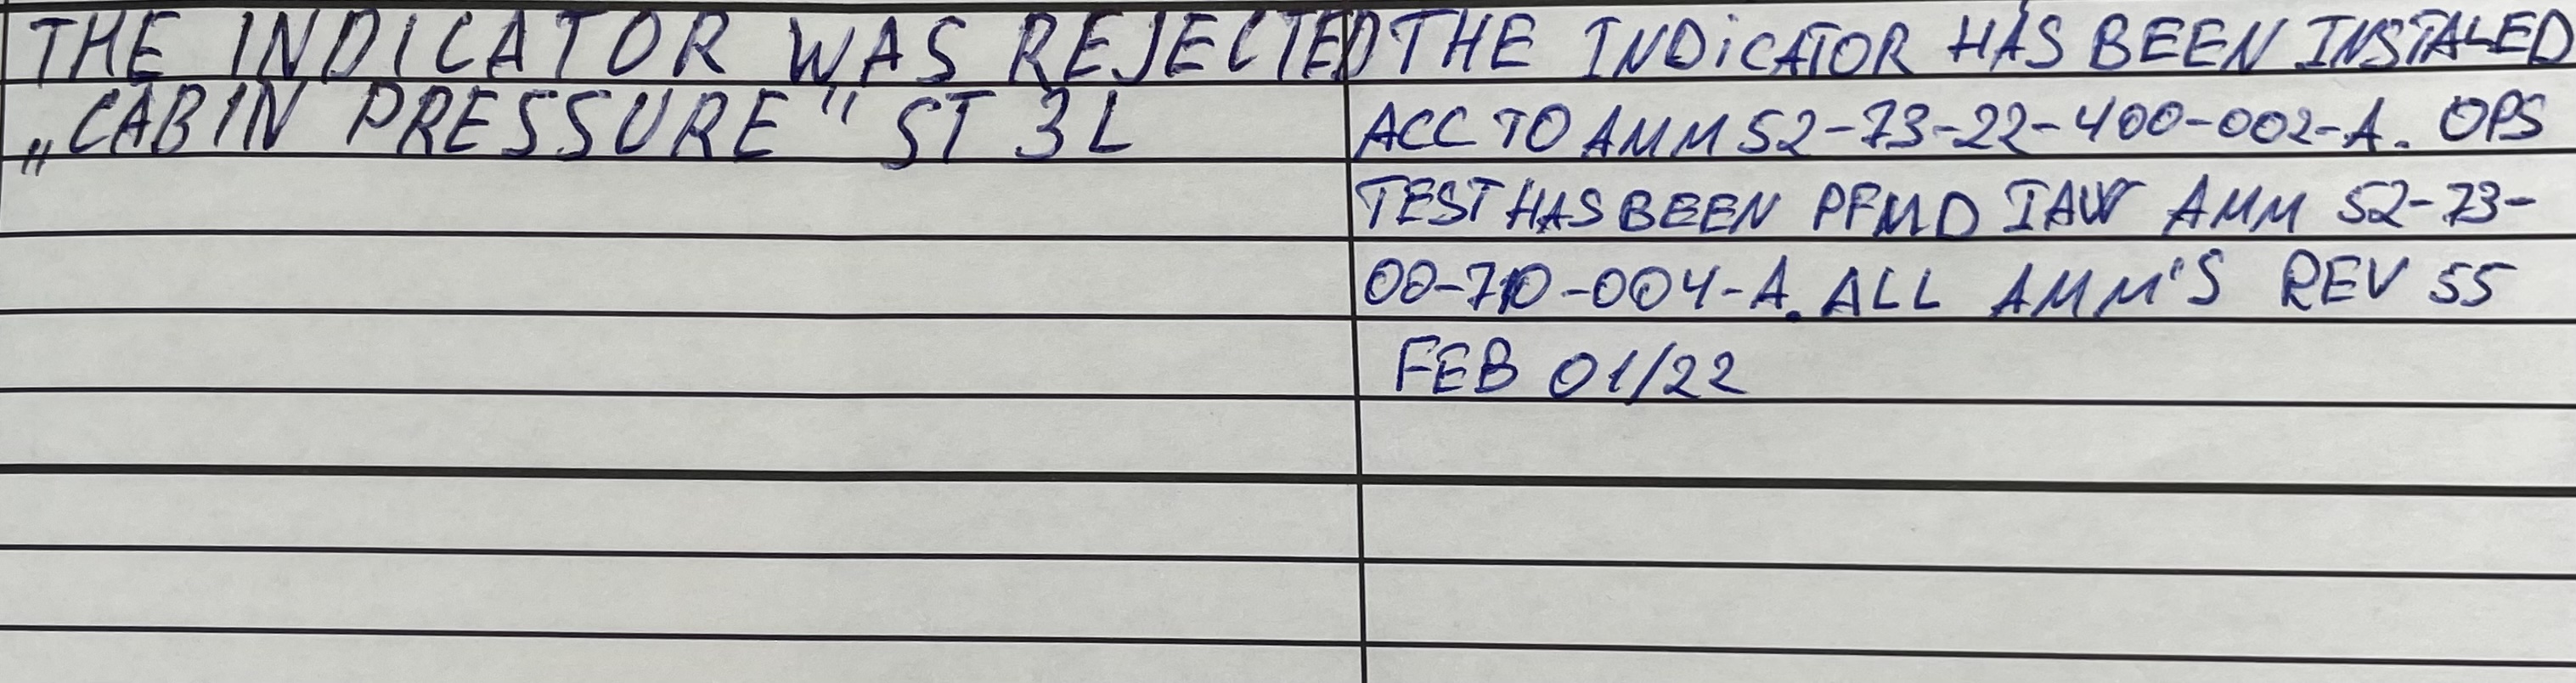 THE INDICATOR WAS REJECTED
„CABIN PRESSURE" ST 3L
THE INDiCATOR HAS BEEN INSTALED
ACC TO AMM 52-73-22-400-002-A. OPS
TEST HAS BEEN PFMD IAW AMM 52-73-
00-710-004-A. ALL AMM'S REV 55
FEB 01/22